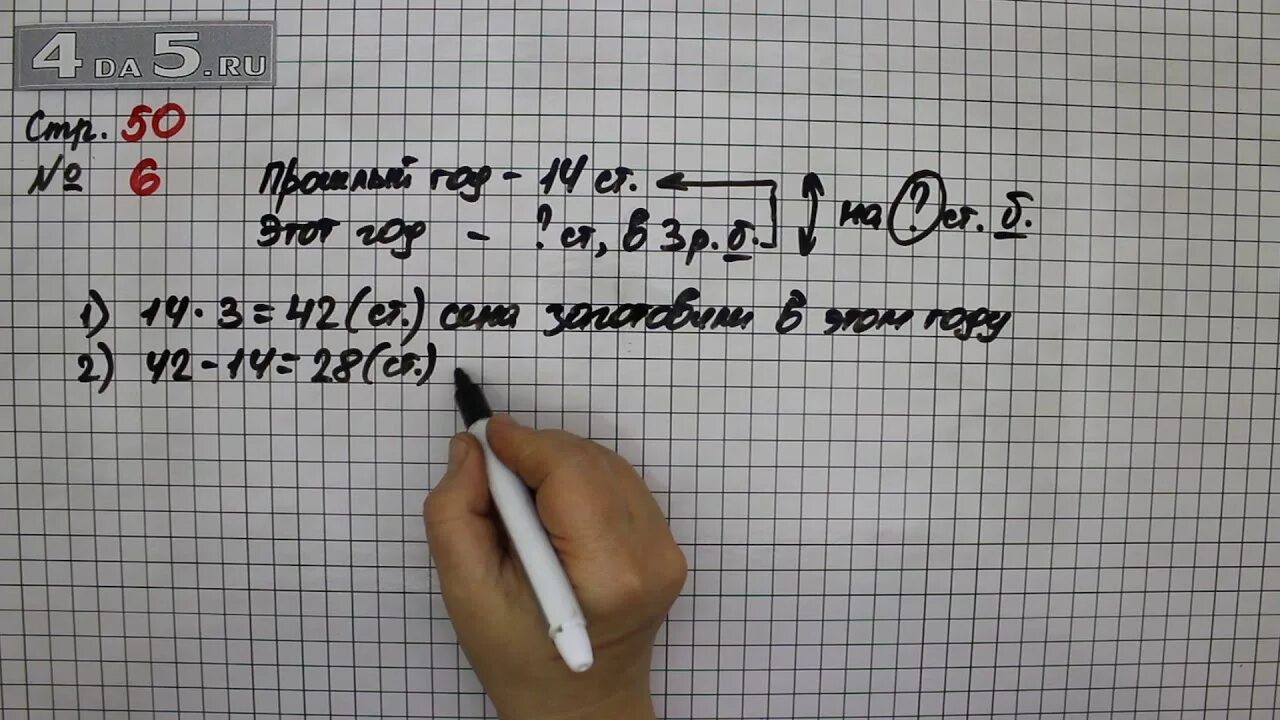 4DA5.RU
Стр. 50
№ 6
Прошлый год - 14 ст.
Этот год - ? ст, в 3 р. б.
на ? ст. б.
1) 14 · 3 = 42 (ст.) сена заготовили в этом году
2) 42 - 14 = 28 (ст.)